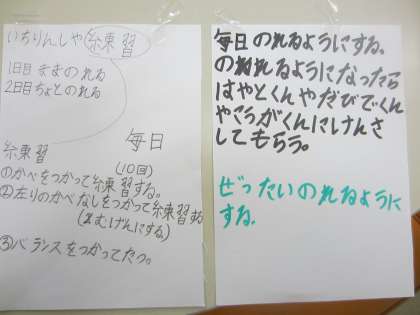 いちりんしゃ練習
1日目 ままのれる
2日目ちょとのれる
毎日
練習
(10回)
①かべをつかって練習する。
②左りのかべなしをつかって練習する
(2むけんにする)
③バランスをつかってたつ。
毎日のれるようにする。
のれるようになったら
はやとくんやだびでくん
やこうがくんにけんさ
してもらう。
ぜったいのれるように
する.